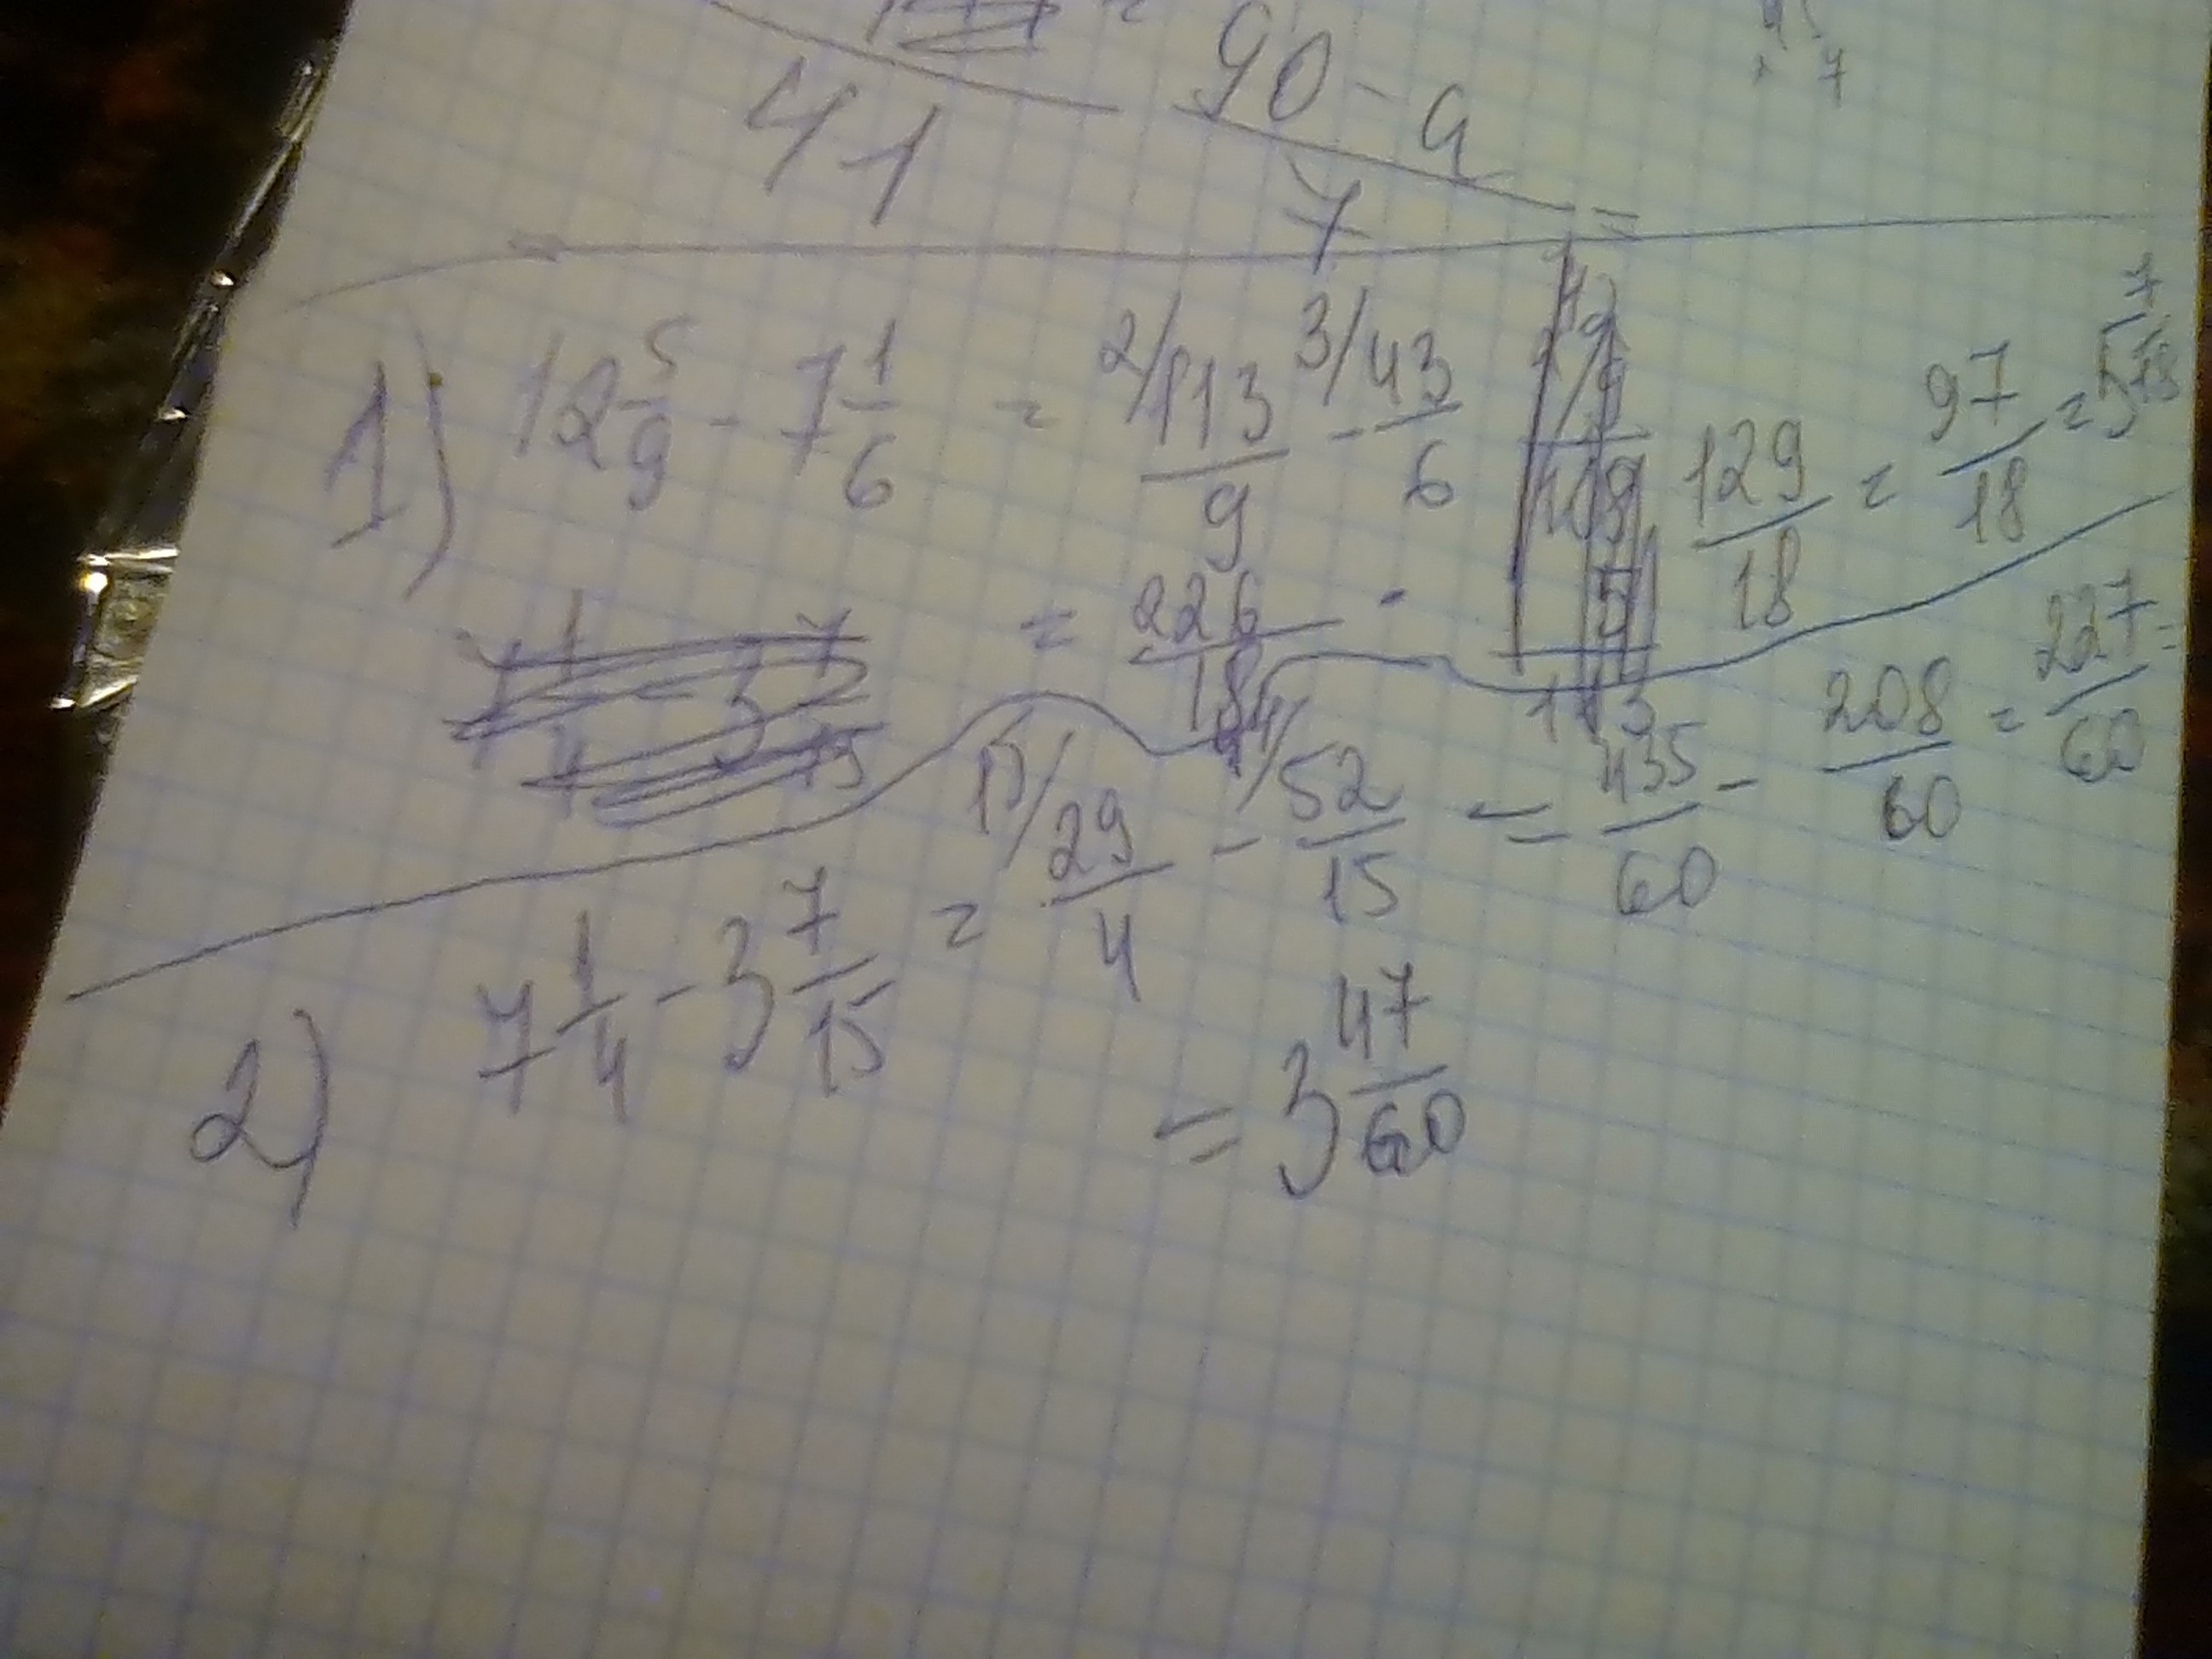 90 - a
41 7 =
1) 12 5/9 - 7 1/6 = 2/ 113/9 - 3/ 43/6
= 226/18 - 129/18 = 97/18 = 5 7/18
2) 7 1/4 - 3 7/15 = 15/ 29/4 - 4/ 52/15 = 435/60 - 208/60 = 227/60 =
= 3 47/60